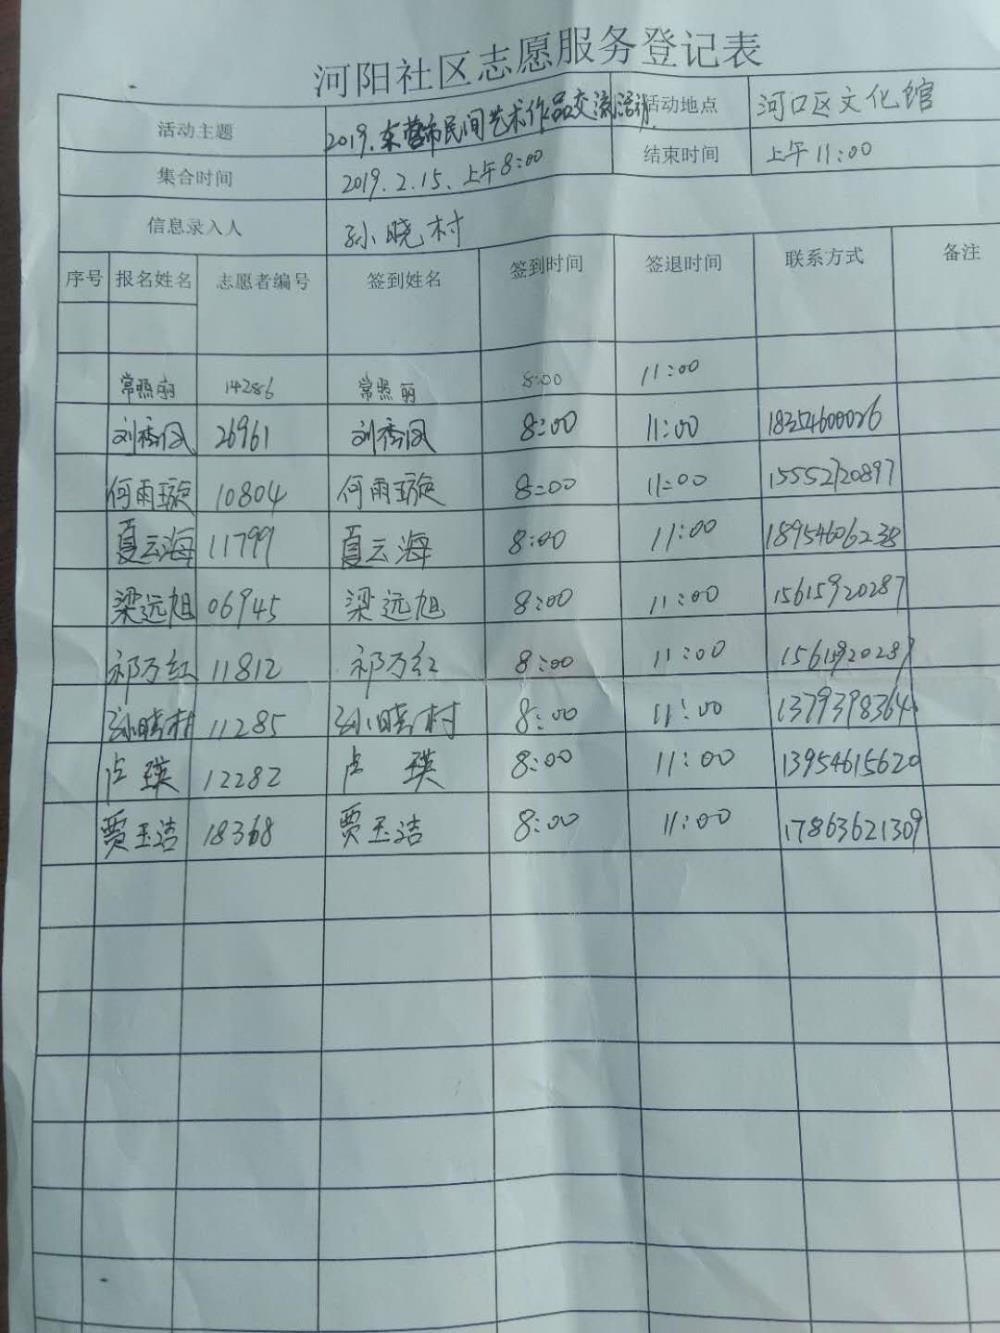 河阳社区志愿服务登记表
活动主题 2019.东营市民间艺术作品交流活动 活动地点 河口区文化馆
集合时间 2019.2.15.上午8:00 结束时间 上午11:00
信息录入人 孙晓村
序号 报名姓名 志愿者编号 签到姓名 签到时间 签退时间 联系方式 备注
常照丽 14286 常照丽 8:00 11:00
刘秀凤 26961 刘秀凤 8:00 11:00 18254600026
何雨璇 10804 何雨璇 8:00 11:00 15552720897
夏云海 11799 夏云海 8:00 11:00 18954606238
梁远旭 06945 梁远旭 8:00 11:00 15615920287
祁万红 11812 祁万红 8:00 11:00 15615920287
孙晓村 11285 孙晓村 8:00 11:00
卢瑛 12282 卢瑛 8:00 11:00 13954615620
贾玉洁 18368 贾玉洁 8:00 11:00 17863621309